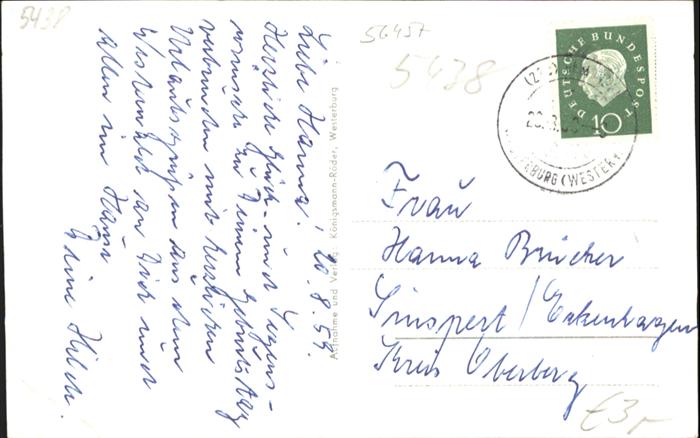 5438
56457
5438
Liebe Hanna! 20.8.59.
Herzliche Glück- und Segens-
wünsche zu Deinem Geburtstag
verbunden mit herzlichen
Urlaubsgrüßen aus dem
Westerwald an Dich und
allen im Hause
Deine Hilde.
Aufnahme und Verlag Königsmann-Röder, Westerburg
DEUTSCHE BUNDESPOST
10
WESTERBURG (WESTERW)
Frau
Hanna Brücher
Sinspert / Eckenhagen
Kreis Oberberg
€3,-